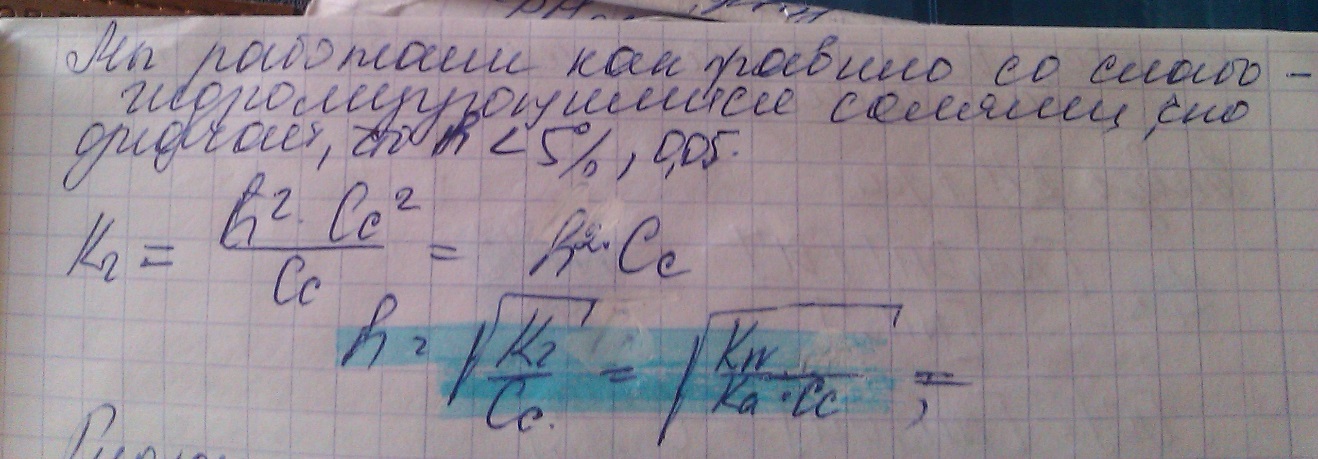 Мы работаем как правило со слабо-
гидролизующимися солями, что
означает, что h < 5%, 0,05.
Kг = h²·Cc² / Cc = h²·Cc
h = √(Kг / Cc) = √(Kw / Ka·Cc) ;